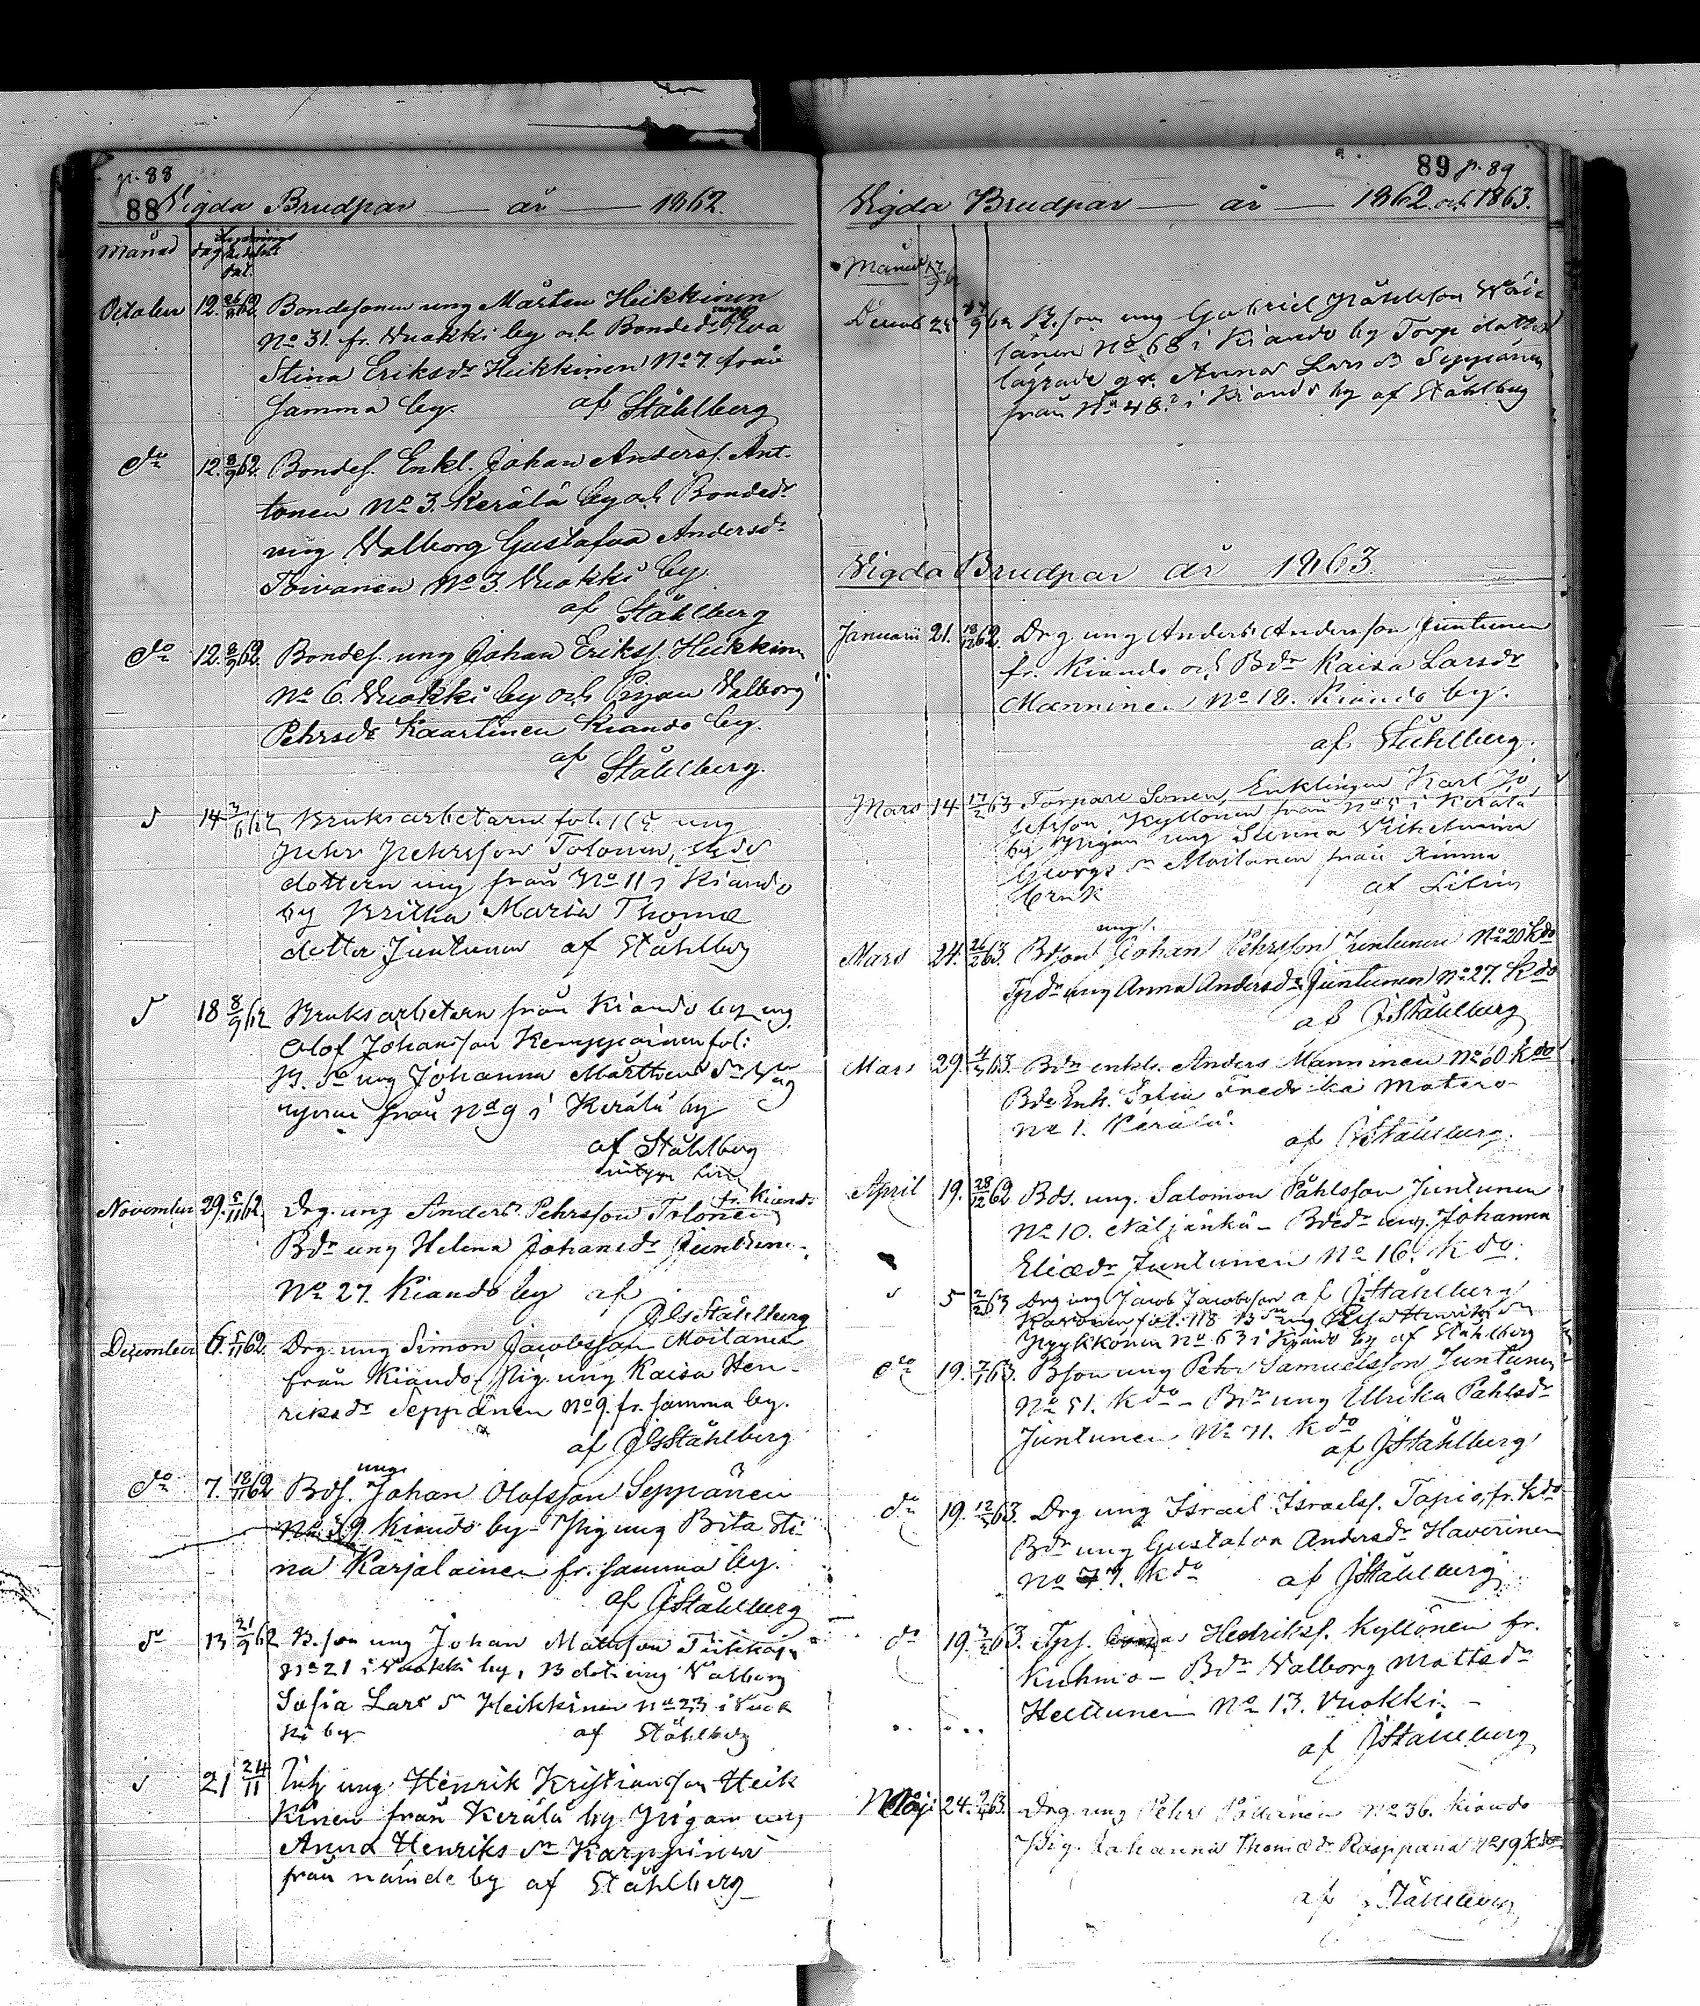 p. 88
88 Vigda Brudpar — år — 1862.
Månad dag
October 12. 26/8 62. Bondesonen ung Mårten Heikkinen
No 31. fr. Vuokki by och Bondedr unga Eva
Stina Eriksdr Heikkinen No 7. från
samma by. af Ståhlberg
do 12. 8/9 62. Bondes. Enkl. Johan Anderss. Ant-
tonen No 3. Kerälä by och Bondedr
ung Valborg Gustafva Andersdr
Toivanen No 3. Vuokki by
af Ståhlberg
do 12. 8/9 62. Bondes. ung Johan Erikss. Heikkinen
No 6. Vuokki by och Pigan Valborg
Pehrsdr Kaartinen Kiando by.
af Ståhlberg.
14 62 Bruksarbetaren fol. ung
Pehr Pehrsson Tolonen,
dottern ung från No 11 i Kiando
by Britha Maria Thomæ
dotter Juntunen af Ståhlberg
18 8/9 62 Bruksarbetaren från Kiando by ung
Olof Johansson Kemppainen fol:
B. dr ung Johanna Mårthens dr
från No 9 i Kerälä by
af Ståhlberg
November 29. 5/11 62. Drg. ung Anders Pehrsson Tolonen fr. Kiando
Bdr ung Helena Johansdr Juntunen
No 27. Kiando by af
JGStåhlberg
December 6. 5/11 62. Drg. ung Simon Jacobsson Moilanen
från Kiando, Pig. ung Kaisa Hen-
riksdr Seppänen No 9. fr. samma by.
af JGStåhlberg
do 7. 18/11 62 Bds. unge Johan Olofsson Seppänen
No 39 Kiando by - Pig ung Brita Sti-
na Karjalainen fr. samma by.
af JStåhlberg
do 13 21/9 62 B. son ung Johan Matsson
No 21 i Vuokki by, B dotr ung Valborg
Sofia Lars dr Heikkinen No 23 i Vuok
ki by af Ståhlberg
21 24/11 ung Henrik Kristiansson Heik
kinen från Kerälä by Pigan ung
Anna Henriks dr Karppinen
från nämde by af Ståhlberg
89 p. 89
Vigda Brudpar — år — 1862. och 1863.
Månad
Decemb 25 62 B. son ung Gabriel Påhlsson Wäi-
sänen No 68 i Kiando by Torp dotter
lägrade qv. Anna Lars dr Seppänen
från No 48 i Kiando by af Ståhlberg
Vigda Brudpar år 1863.
Januarii 21. 18/12 62. Drg ung Anders Andersson Juntunen
fr. Kiando och Bdr Kaisa Larsdr
Manninen No 18. Kiando by.
af Ståhlberg.
Mars 14 17/2 63 Torpare Sonen, Enklingen Karl Jo
sefsson Kyllönen från No 5 i Kerälä
by Pigan ung Stina Vilhelmina
Georgs dr Moilanen från Ämmä
bruk af Lilius
Mars 24. 26/2 63. Bdson ung. Johan Pehrsson Juntunen No 20 Kdo
Tpdr ung Anna Andersdr Juntunen No 27. Kdo
af JStåhlberg
Mars 29. 4/3 63. Bdr enkl. Anders Manninen No 60 Kdo
Bdr Enk. Fredrika Matero-
No 1. Kerälä.
af JStåhlberg.
April 19. 28/12 62 Bds. ung. Salomon Påhlsson Juntunen
No 10. Näljänkä - Bdedr ung. Johanna
Eliædr Juntunen No 16. K do.
5 2/2 63 Drg ung Jacob Jacobsson af JStåhlberg
Karvonen fol. 118 B dr ung Henriks dr
Pyykkönen No 63 i Kiando by af Ståhlberg
do 19. 7/1 63. Bson ung Pehr Samuelsson Juntunen
No 51. Kdo - Bdr ung Ulrika Påhlsdr
Juntunen No 71. Kdo
af JStåhlberg
do 19. 12/3 63. Drg ung Israel Israelss. Tapio, fr. Kdo
Bdr ung Gustafva Andersdr Haverinen
No 77. Kdo af JStåhlberg
do 19. 3/2 63. Tps. Hedrikss. Kyllönen fr.
Kuhmo - Bdr Valborg Mattsdr
Heittunen No 13. Vuokki -
af JStåhlberg
Maji 24. 63. Drg ung Pehr No 36. Kiando
Pig. Johanna Thomædr Raappana No 19 Kdo
af Ståhlberg